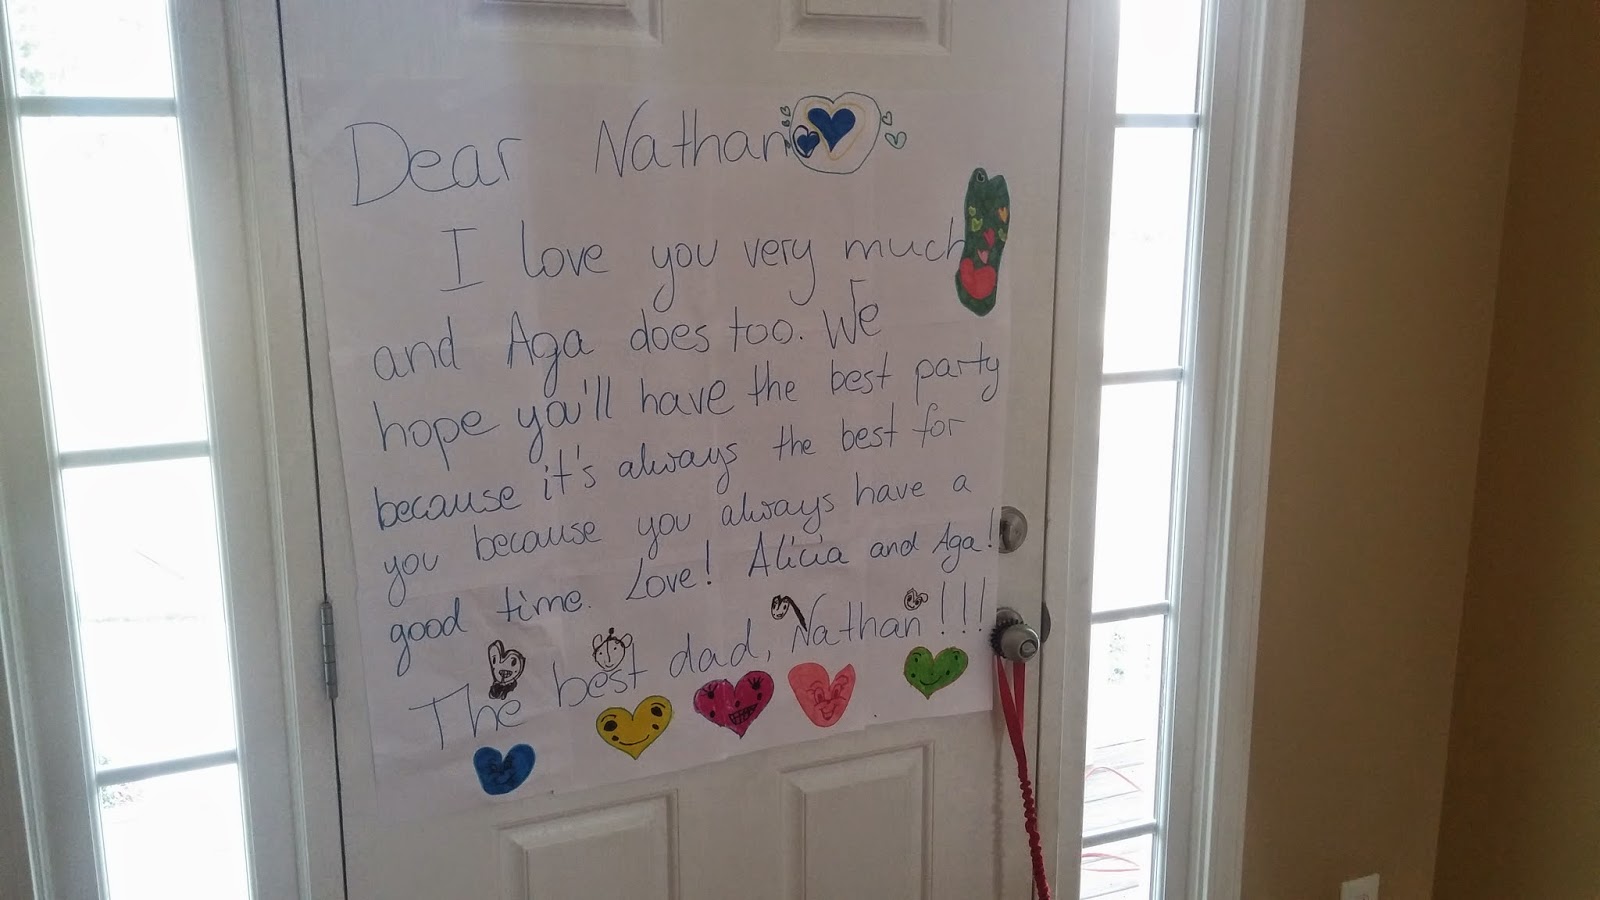 Dear Nathan
I love you very much
and Aga does too. We
hope you'll have the best party
because it's always the best for
you because you always have a
good time. Love! Alicia and Aga!
The best dad, Nathan!!!